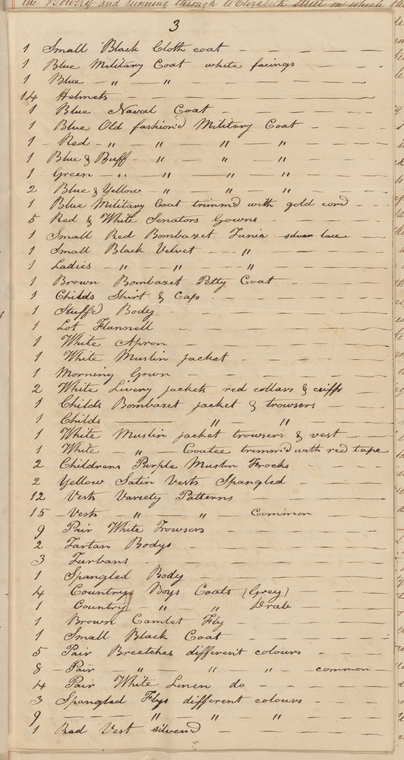 the Bowery and running through to Elizabeth Street on which
3
1 Small Black Cloth coat
1 Blue Military Coat white facings
1 Blue " "
14 Helmets
1 Blue Naval Coat
1 Blue Old fashion'd Military Coat
1 Red " " " "
1 Blue & Buff " " "
1 Green " " " "
2 Blue & Yellow " " "
1 Blue Military Coat trimm'd with gold cord
5 Red & White Senators Gowns
1 Small Red Bombazet Tunic silver lace
1 Small Black Velvet "
1 Ladies " " "
1 Brown Bombazet Petty Coat
1 Childs Shirt & Cap
1 Stuff'd Body
1 Lot Flannell
1 White Apron
1 White Muslin jacket
1 Morning Gown
2 White Livery jackets red collars & cuffs
1 Childs Bombazet jacket & trowsers
1 Childs " "
1 White Muslin jacket trowsers & vest
1 White " Coatee trimm'd with red tape
2 Childrens Purple Muslin Frocks
2 Yellow Satin Vests Spangled
12 Vests Variety Patterns
15 Vests " " Common
9 Pair White Trowsers
2 Tartan Bodys
3 Turbans
1 Spangled Body
4 Country Boys Coats (Grey)
1 Country " " Drab
1 Brown Camlet Fly
1 Small Black Coat
5 Pair Breetches different colours
8 Pair " " " common
4 Pair White Linen do
3 Spangled Flys different colours
9 " " "
1 Red Vest silver'd